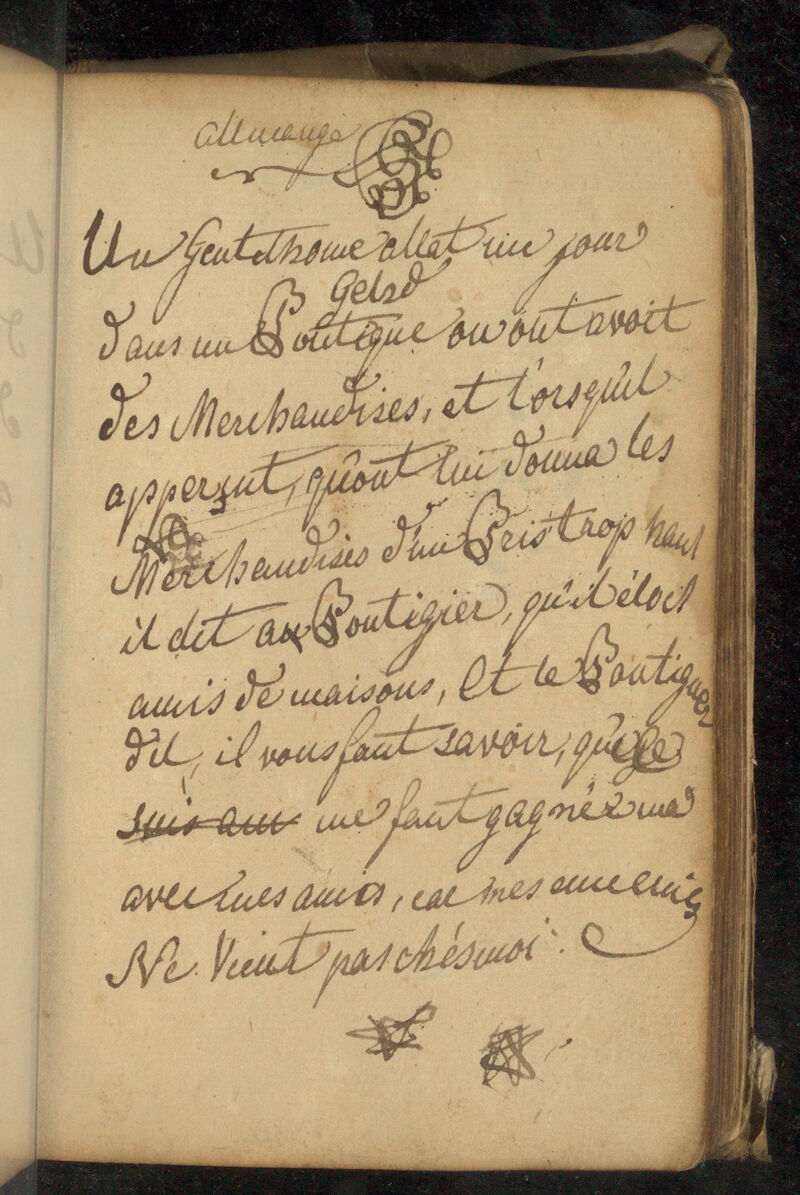 allemange
Un Gentithome allat un jour
Gelzd
dans un Boutique ou out avoit
des Merchandises, et l'orsqu'il
apperzut, qu'out lui donna les
Merchandises d'un Pris trop haut
il dit au Boutigier, qu'il étoit
amis de maisons, Et le Boutiguer
dit, il vous faut savoir, qu'
suis am me faut gagnéz ma
avec mes amis, car mes ennemis
Ne Vient pas chés moi.